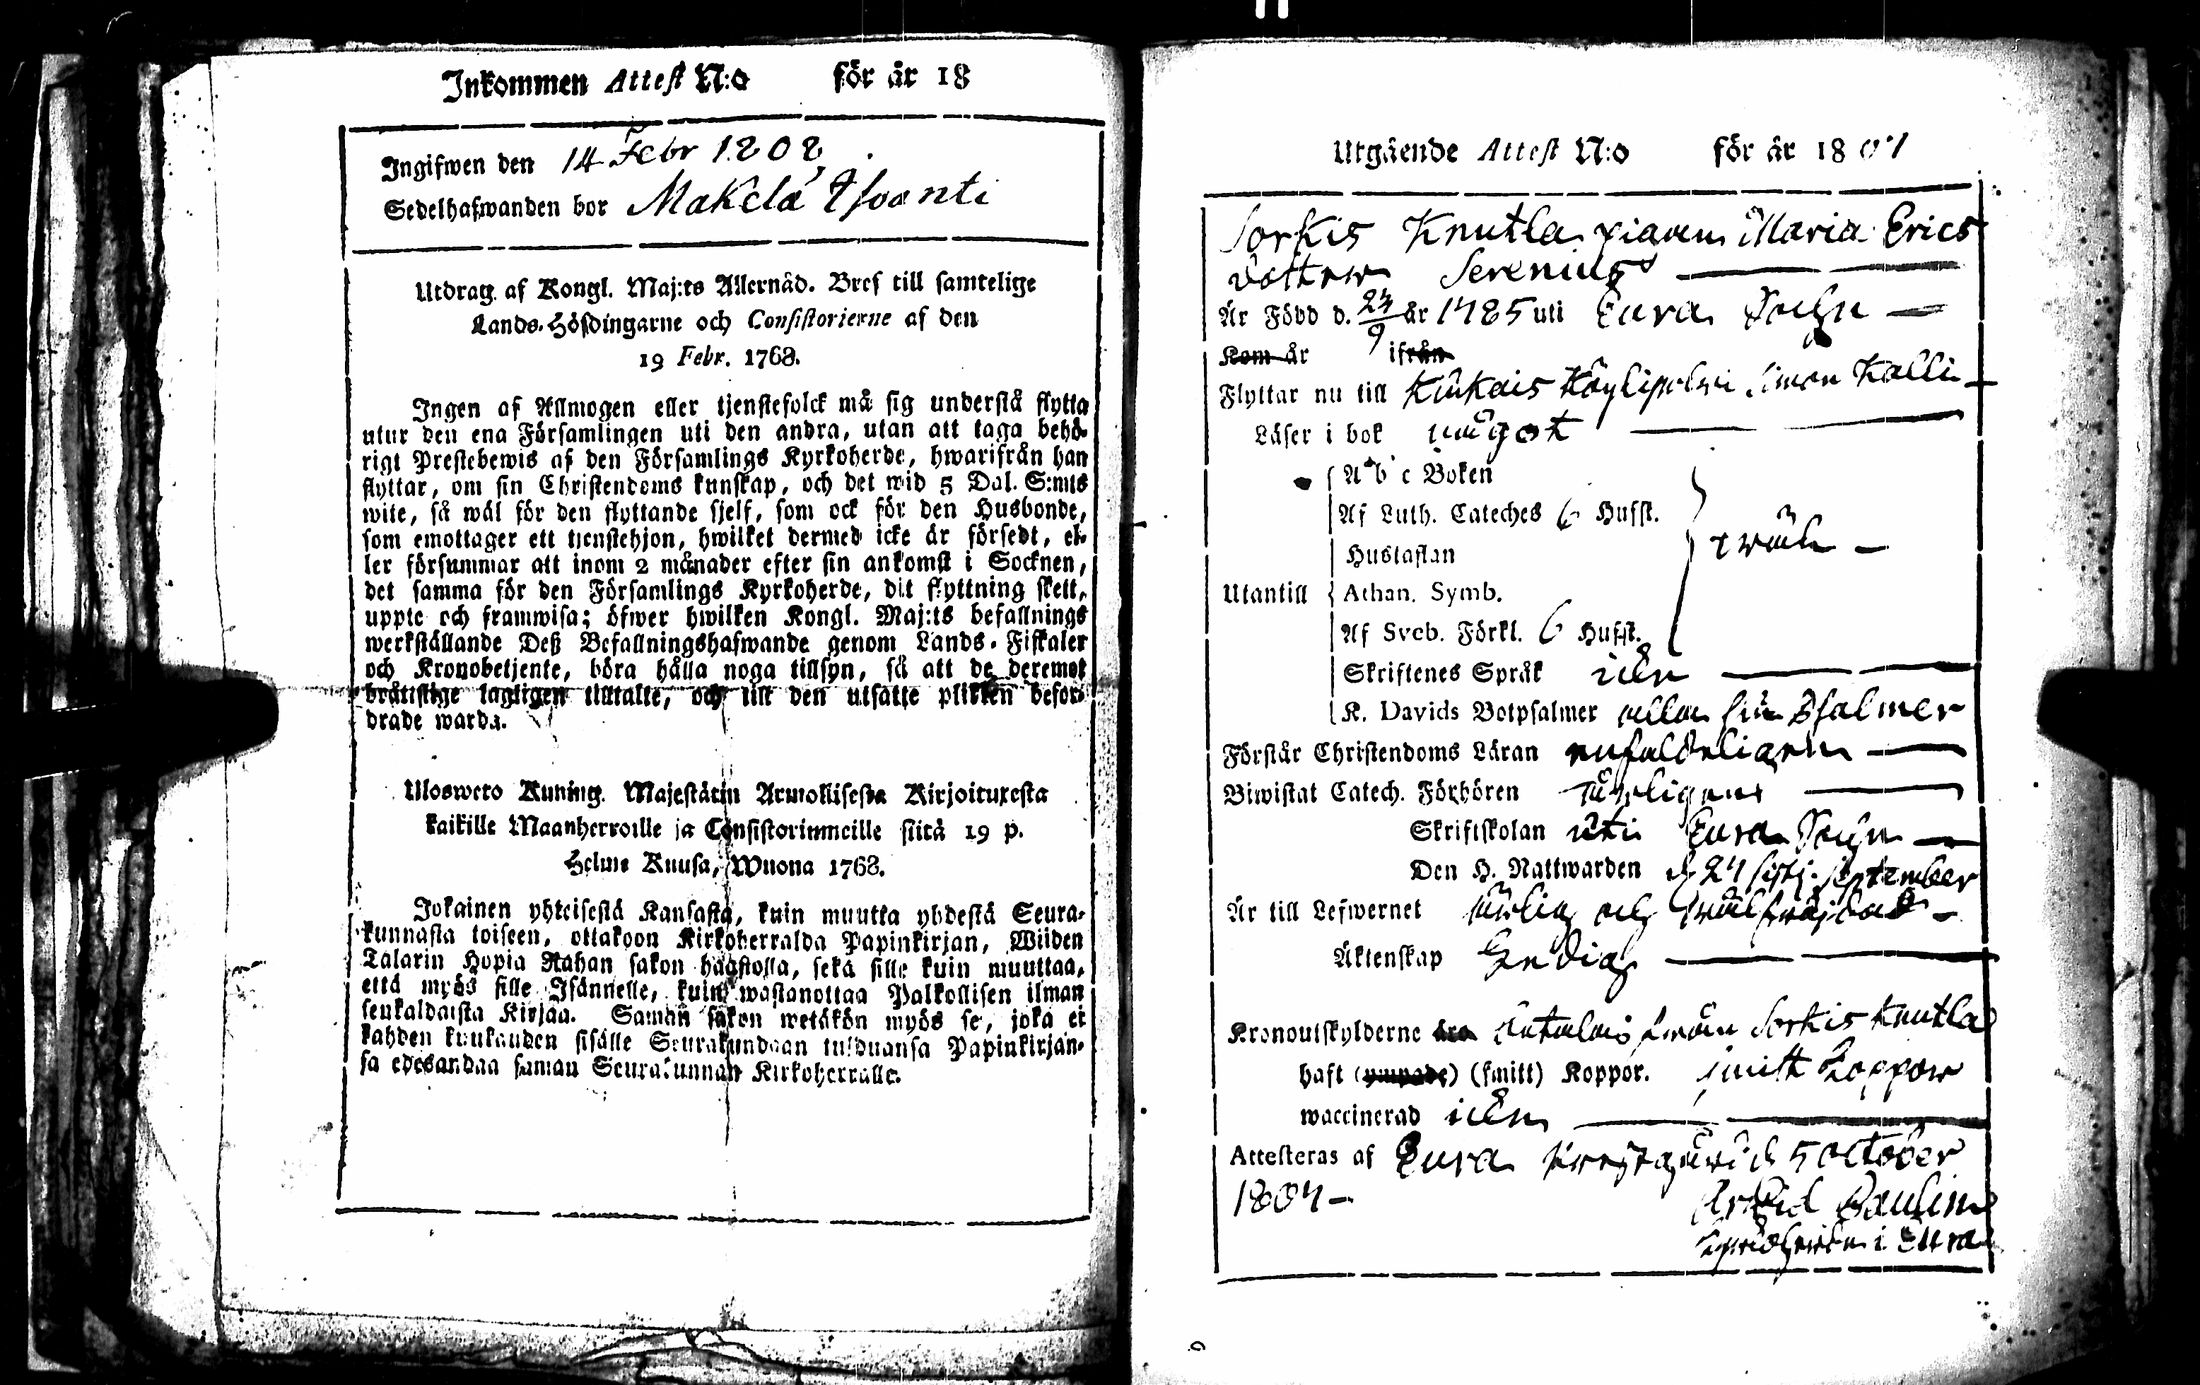 Inkommen Attest N:o för år 18
Ingifwen den 14 Febr 1808
Sedelhafwanden bor Makelä
Utdrag af Kongl. Maj:ts Allernåd. Bref till samtelige
Lands-Höfdingarne och Consistorierne af den
19 Febr. 1768.
Ingen af Allmogen eller tjenstefolck må sig understå flytta
utur den ena Församlingen uti den andra, utan att taga behö-
rigt Prestebewis af den Församlings Kyrkoherde, hwarifrån han
flyttar, om sin Christendoms kunskap, och det wid 5 Dal. S:mts
wite, så wäl för den flyttande sjelf, som ock för den Husbonde,
som emottager ett tjenstehjon, hwilket dermed icke är försedt, el-
ler försummar att inom 2 månader efter sin ankomst i Socknen,
det samma för den Församlings Kyrkoherde, dit flyttning skett,
uppte och framwisa; öfwer hwilken Kongl. Maj:ts befallnings
werkställande Deß Befallningshafwande genom Lands-Fiskaler
och Kronobetjente, böra hålla noga tillsyn, så att de deremot
bråttslige lagligen tilltalte, och till den utsatte plikten befor-
drade warda.
Ulosweto Kuning. Majestätin Armollisesta Kirjoituxesta
kaikille Maanherroille ja Consistoriumeille siitä 19 p.
Helme Kuusa, Wuona 1768.
Jokainen yhteisestä Kansasta, kuin muutta yhdestä Seura-
kunnasta toiseen, ottakoon Kirkoherralda Papinkirjan, Wiiden
Talarin Hopia Rahan sakon haastolla, sekä sille kuin muuttaa,
että myös sille Isännelle, kuin wastanottaa Palkollisen ilman
senkaldaista Kirjaa. Saman sakon wetäkön myös se, joka ei
kahden kuukauden sisälle Seurakundaan tulduansa Papinkirjan-
sa edesandaa saman Seurakunnan Kirkoherralle.
Utgående Attest N:o för år 1807
Sorkis Knutla pigan Maria Erics
dotter Serenius
Är Född d. 24/9 år 1785 uti Eura Sochn
Kom år ifrån
Flyttar nu till Kiukais Köylipolwi Simon Kalli
Läser i bok något
A b c Boken
Af Luth. Cateches 6 Hufst.
Hustaflan
Utantill Athan. Symb.
Af Sveb. Förkl. 6 Hufst.
wäl
Skriftenes Språk icke
K. Davids Botpsalmer alla siu Psalmer
Förstår Christendoms Läran enfaldeligen
Biwistat Catech. Förhören årligen
Skriftskolan uti Eura Sochn
Den H. Nattwarden d 27 sistl. September
Är till Lefwernet ärlig och wälfräjdad
Äktenskap Ledig
Kronoutskylderne äro betalas från Sorkis Knutla
haft (ympade) (smitt) Koppor. smitt Koppor
waccinerad icke
Attesteras af Eura Prestgård d 5 October
1807
Arvid Paulin
Kyrckoherde i Eura